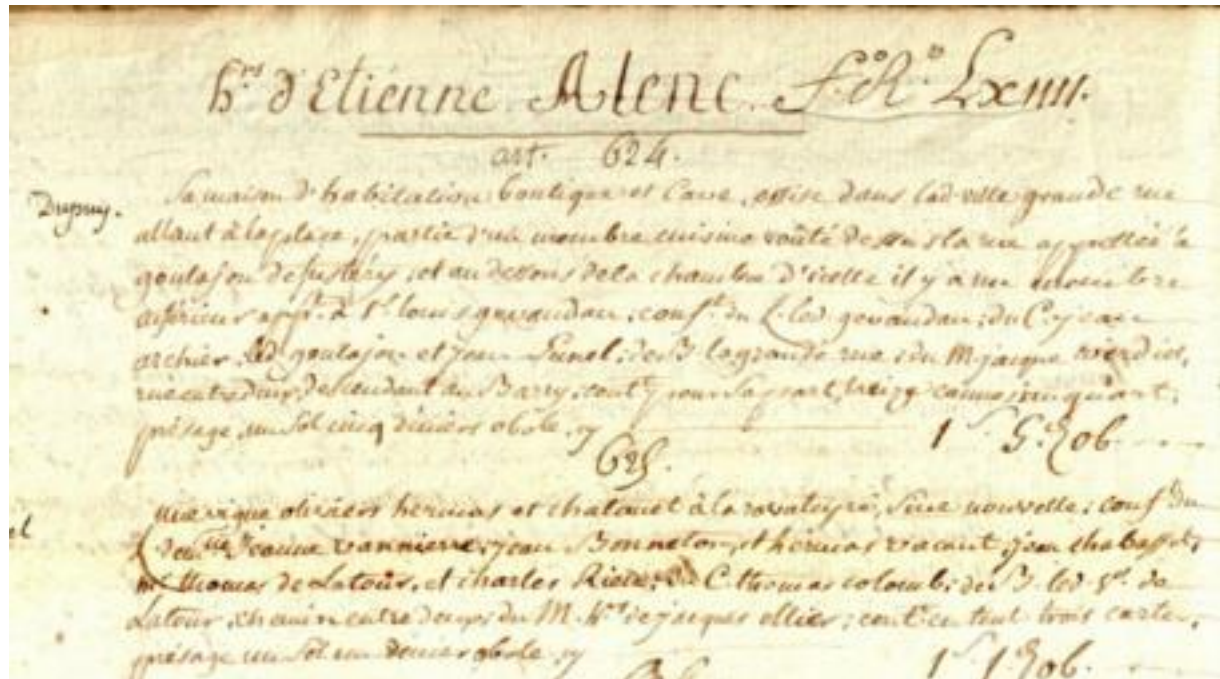 h.rs d'Etienne Alenc. f.o R.o Lxiiii.
art. 624.
Dupuy.
Sa maison d'habitation boutique et Cave, assise dans lad. ville grande rue
allant à la place, partie d'un membre cuisine voûté dessus la rue appellée le
goulajon de fustéry, et au dessous de la chambre d'icelle il y a un membre
inferieur à s.r louis gevaudan; conf.te du L. led. gevaudan; du C. jean
archier, goulajon et jean Lunel; de B. la grande rue; du M. jacque
rue entredeux, descendant au Barry; cont. pour sa part treize cannes quart;
présage, un sol cinq deniers obole. cy 1 s. 5. d. ob.
625.
une vigne oliviers hermas et chatouet à la rue nouvelle; conf. du
Jeanne vannierre; jean Bonneton, et hermas vacant, jean
m.r thomas de Latour, et charles du C. thomas colomb; du B. led. s.r de
Latour, chemin entredeux; du M. h.rs de jacques ollier; cont. en tout trois cartes,
présage un sol un denier obole. cy 1 s. 1. d. ob.